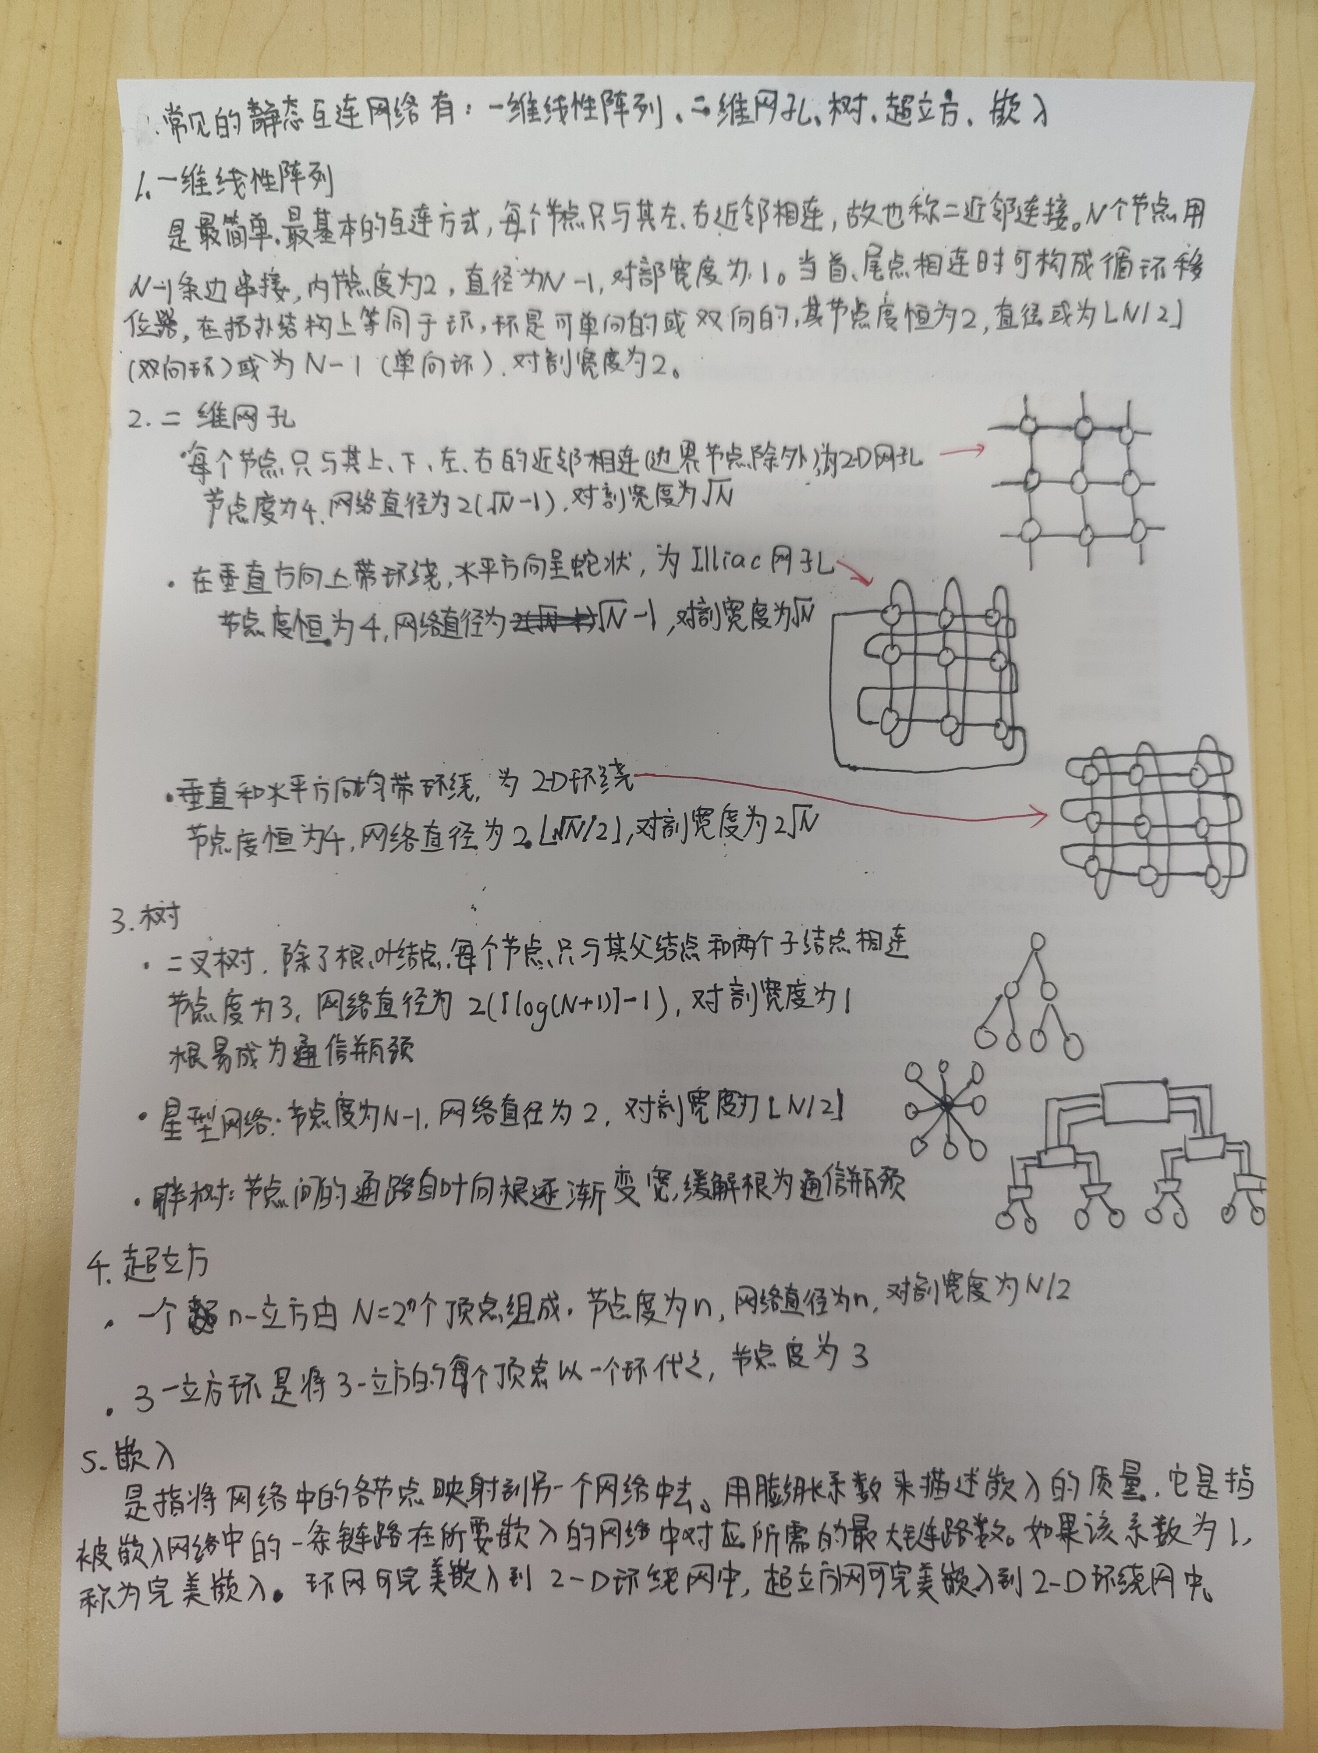 常见的静态互连网络有：一维线性阵列、二维网孔、树、超立方、嵌入
1、一维线性阵列
是最简单、最基本的互连方式，每个节点只与其左、右近邻相连，故也称二近邻连接。N个节点用
N-1条边串接，内节点度为2，直径为N-1，对部宽度为1。当首、尾点相连时可构成循环移
位器，在拓扑结构上等同于环，环是可单向的或双向的，其节点度恒为2，直径或为⌊N/2⌋
(双向环)或为N-1(单向环)，对剖宽度为2。
2.二维网孔
·每个节点只与其上、下、左、右的近邻相连(边界节点除外)为2-D网孔
节点度为4，网络直径为2(√N-1)，对剖宽度为√N
·在垂直方向上带环绕，水平方向呈蛇状，为Illiac网孔
节点度恒为4，网络直径为√N-1，对剖宽度为√N
·垂直和水平方向均带环绕，为2-D环绕
节点度恒为4，网络直径为2⌊√N/2⌋，对剖宽度为2√N
3.树
·二叉树，除了根、叶结点，每个节点只与其父结点和两个子结点相连
节点度为3，网络直径为2(⌈log(N+1)⌉-1)，对剖宽度为1
根易成为通信瓶颈
·星型网络：节点度为N-1，网络直径为2，对剖宽度为⌊N/2⌋
·胖树：节点间的通路自叶向根逐渐变宽，缓解根为通信瓶颈
4.超立方
·一个n-立方由N=2ⁿ个顶点组成。节点度为n，网络直径为n，对剖宽度为N/2
·3-立方环是将3-立方的每个顶点以一个环代之，节点度为3
5.嵌入
是指将网络中的各节点映射到另一个网络中去。用膨胀系数来描述嵌入的质量，它是指
被嵌入网络中的一条链路在所要嵌入的网络中对应所需的最大链路数。如果该系数为1，
称为完美嵌入。环网可完美嵌入到2-D环绕网中，超立方网可完美嵌入到2-D环绕网中。